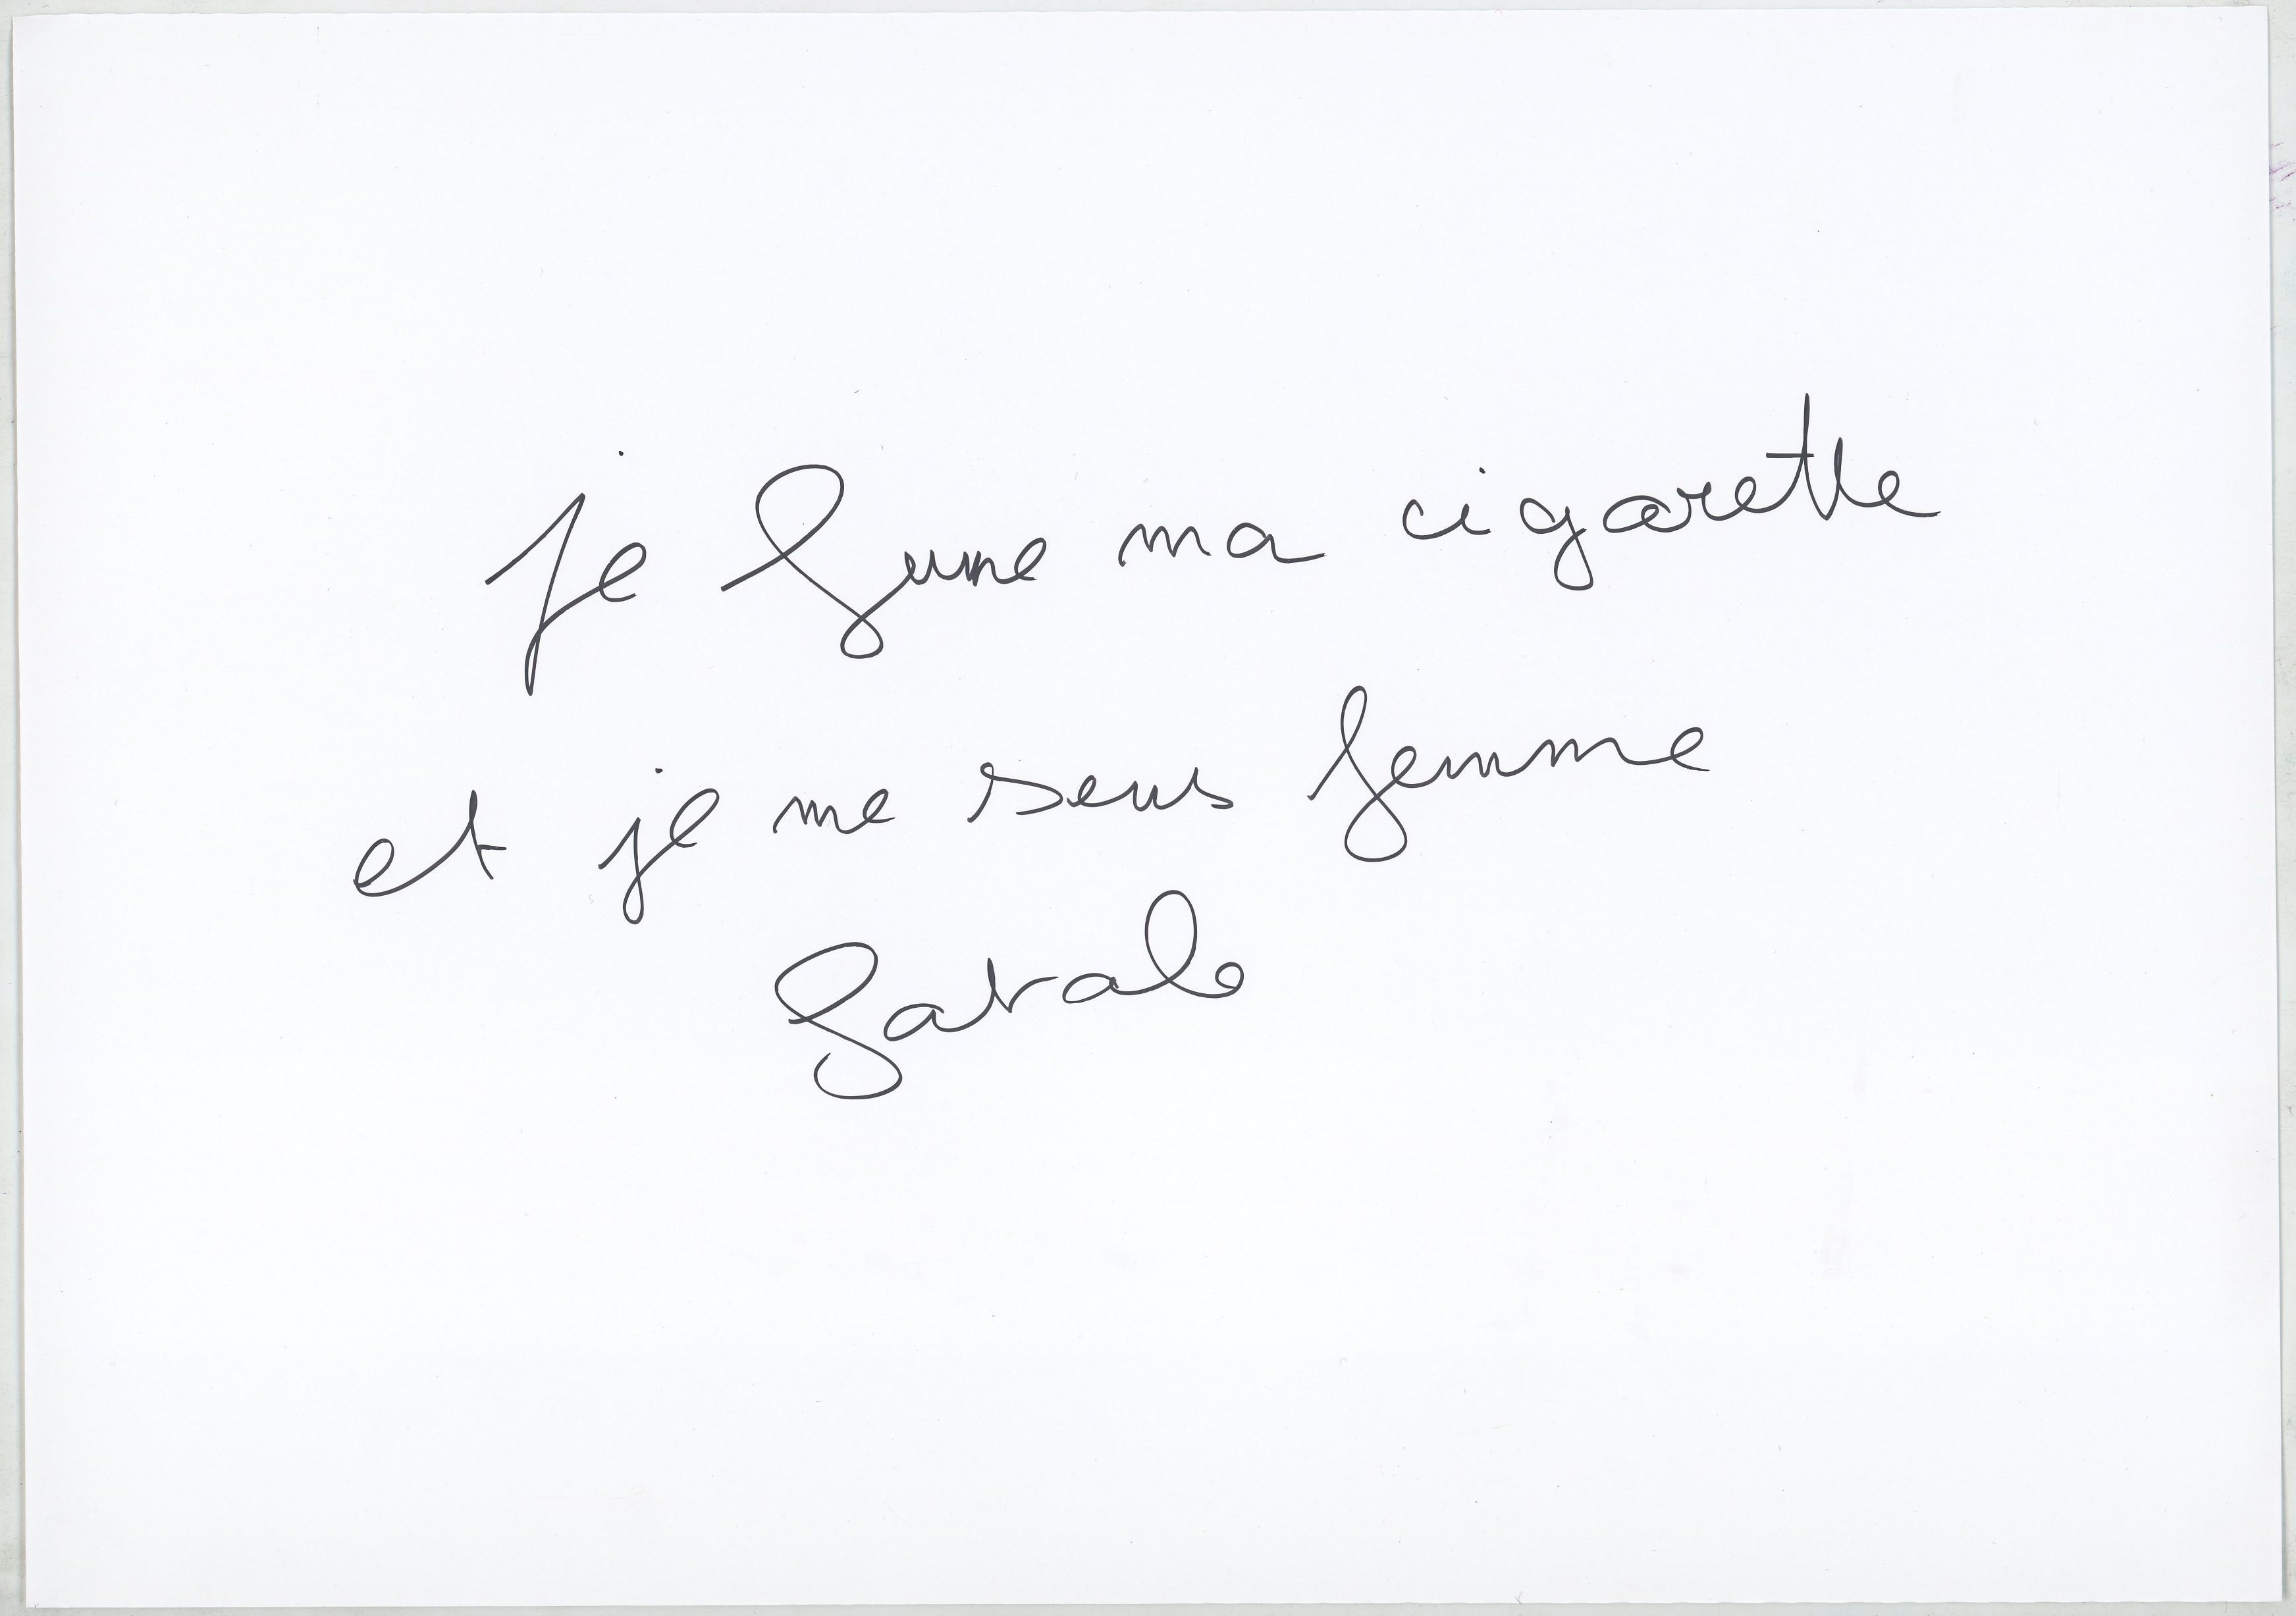 Je fume ma cigarette
et je me sens femme
fatale